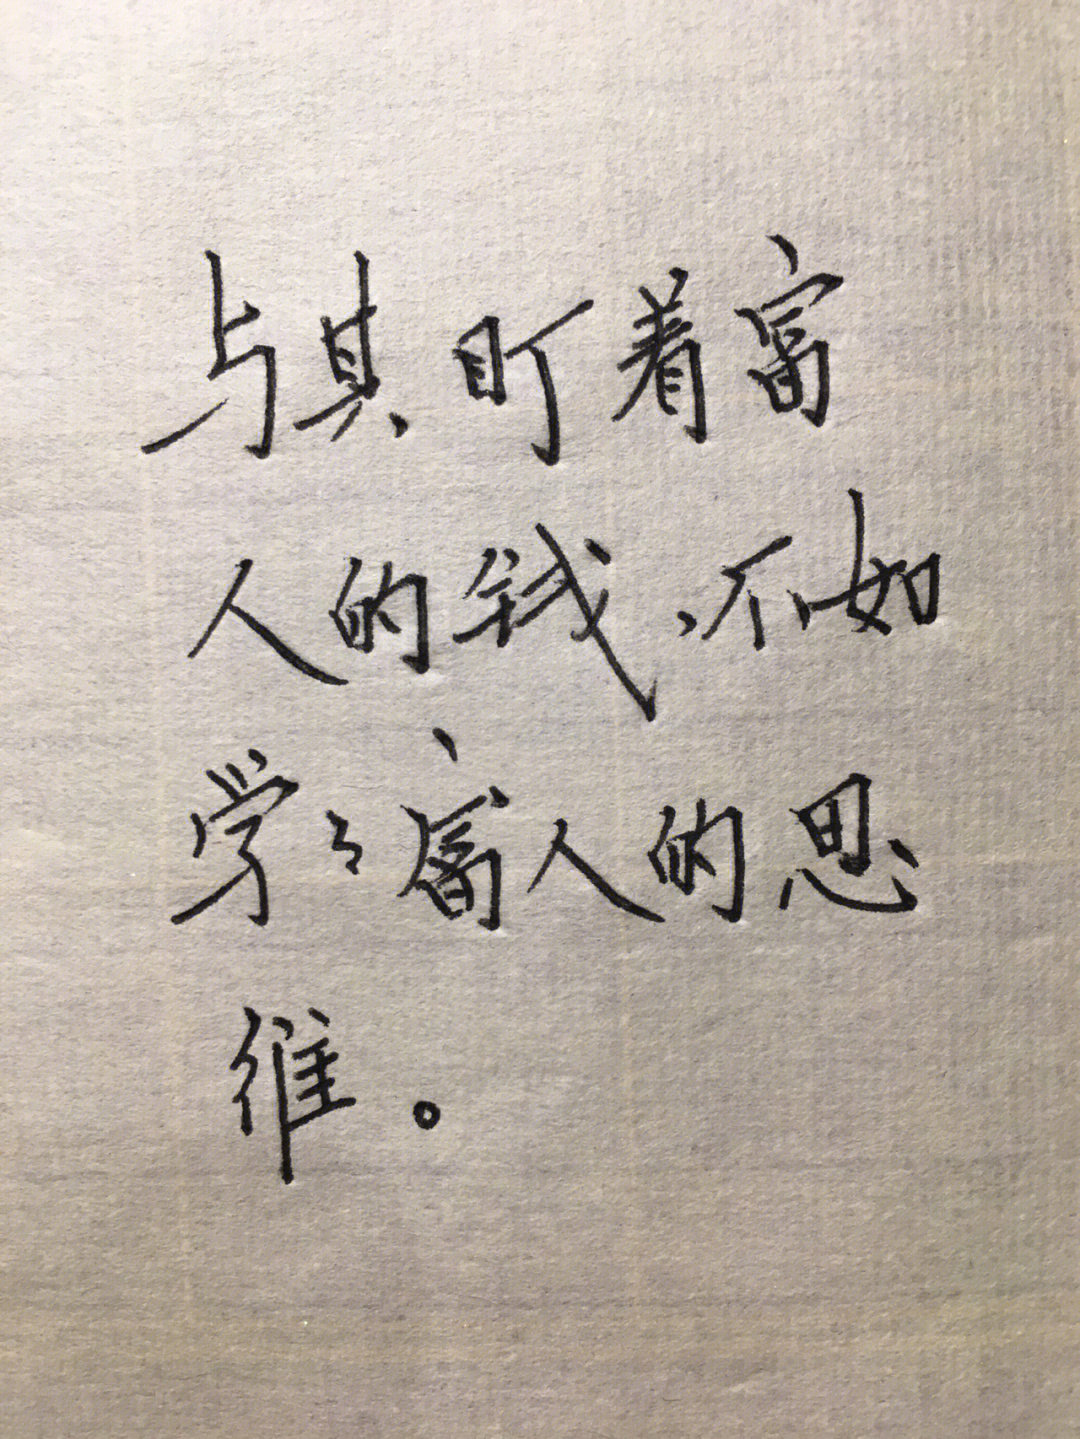 与其盯着富
人的钱,不如
学々富人的思
维。